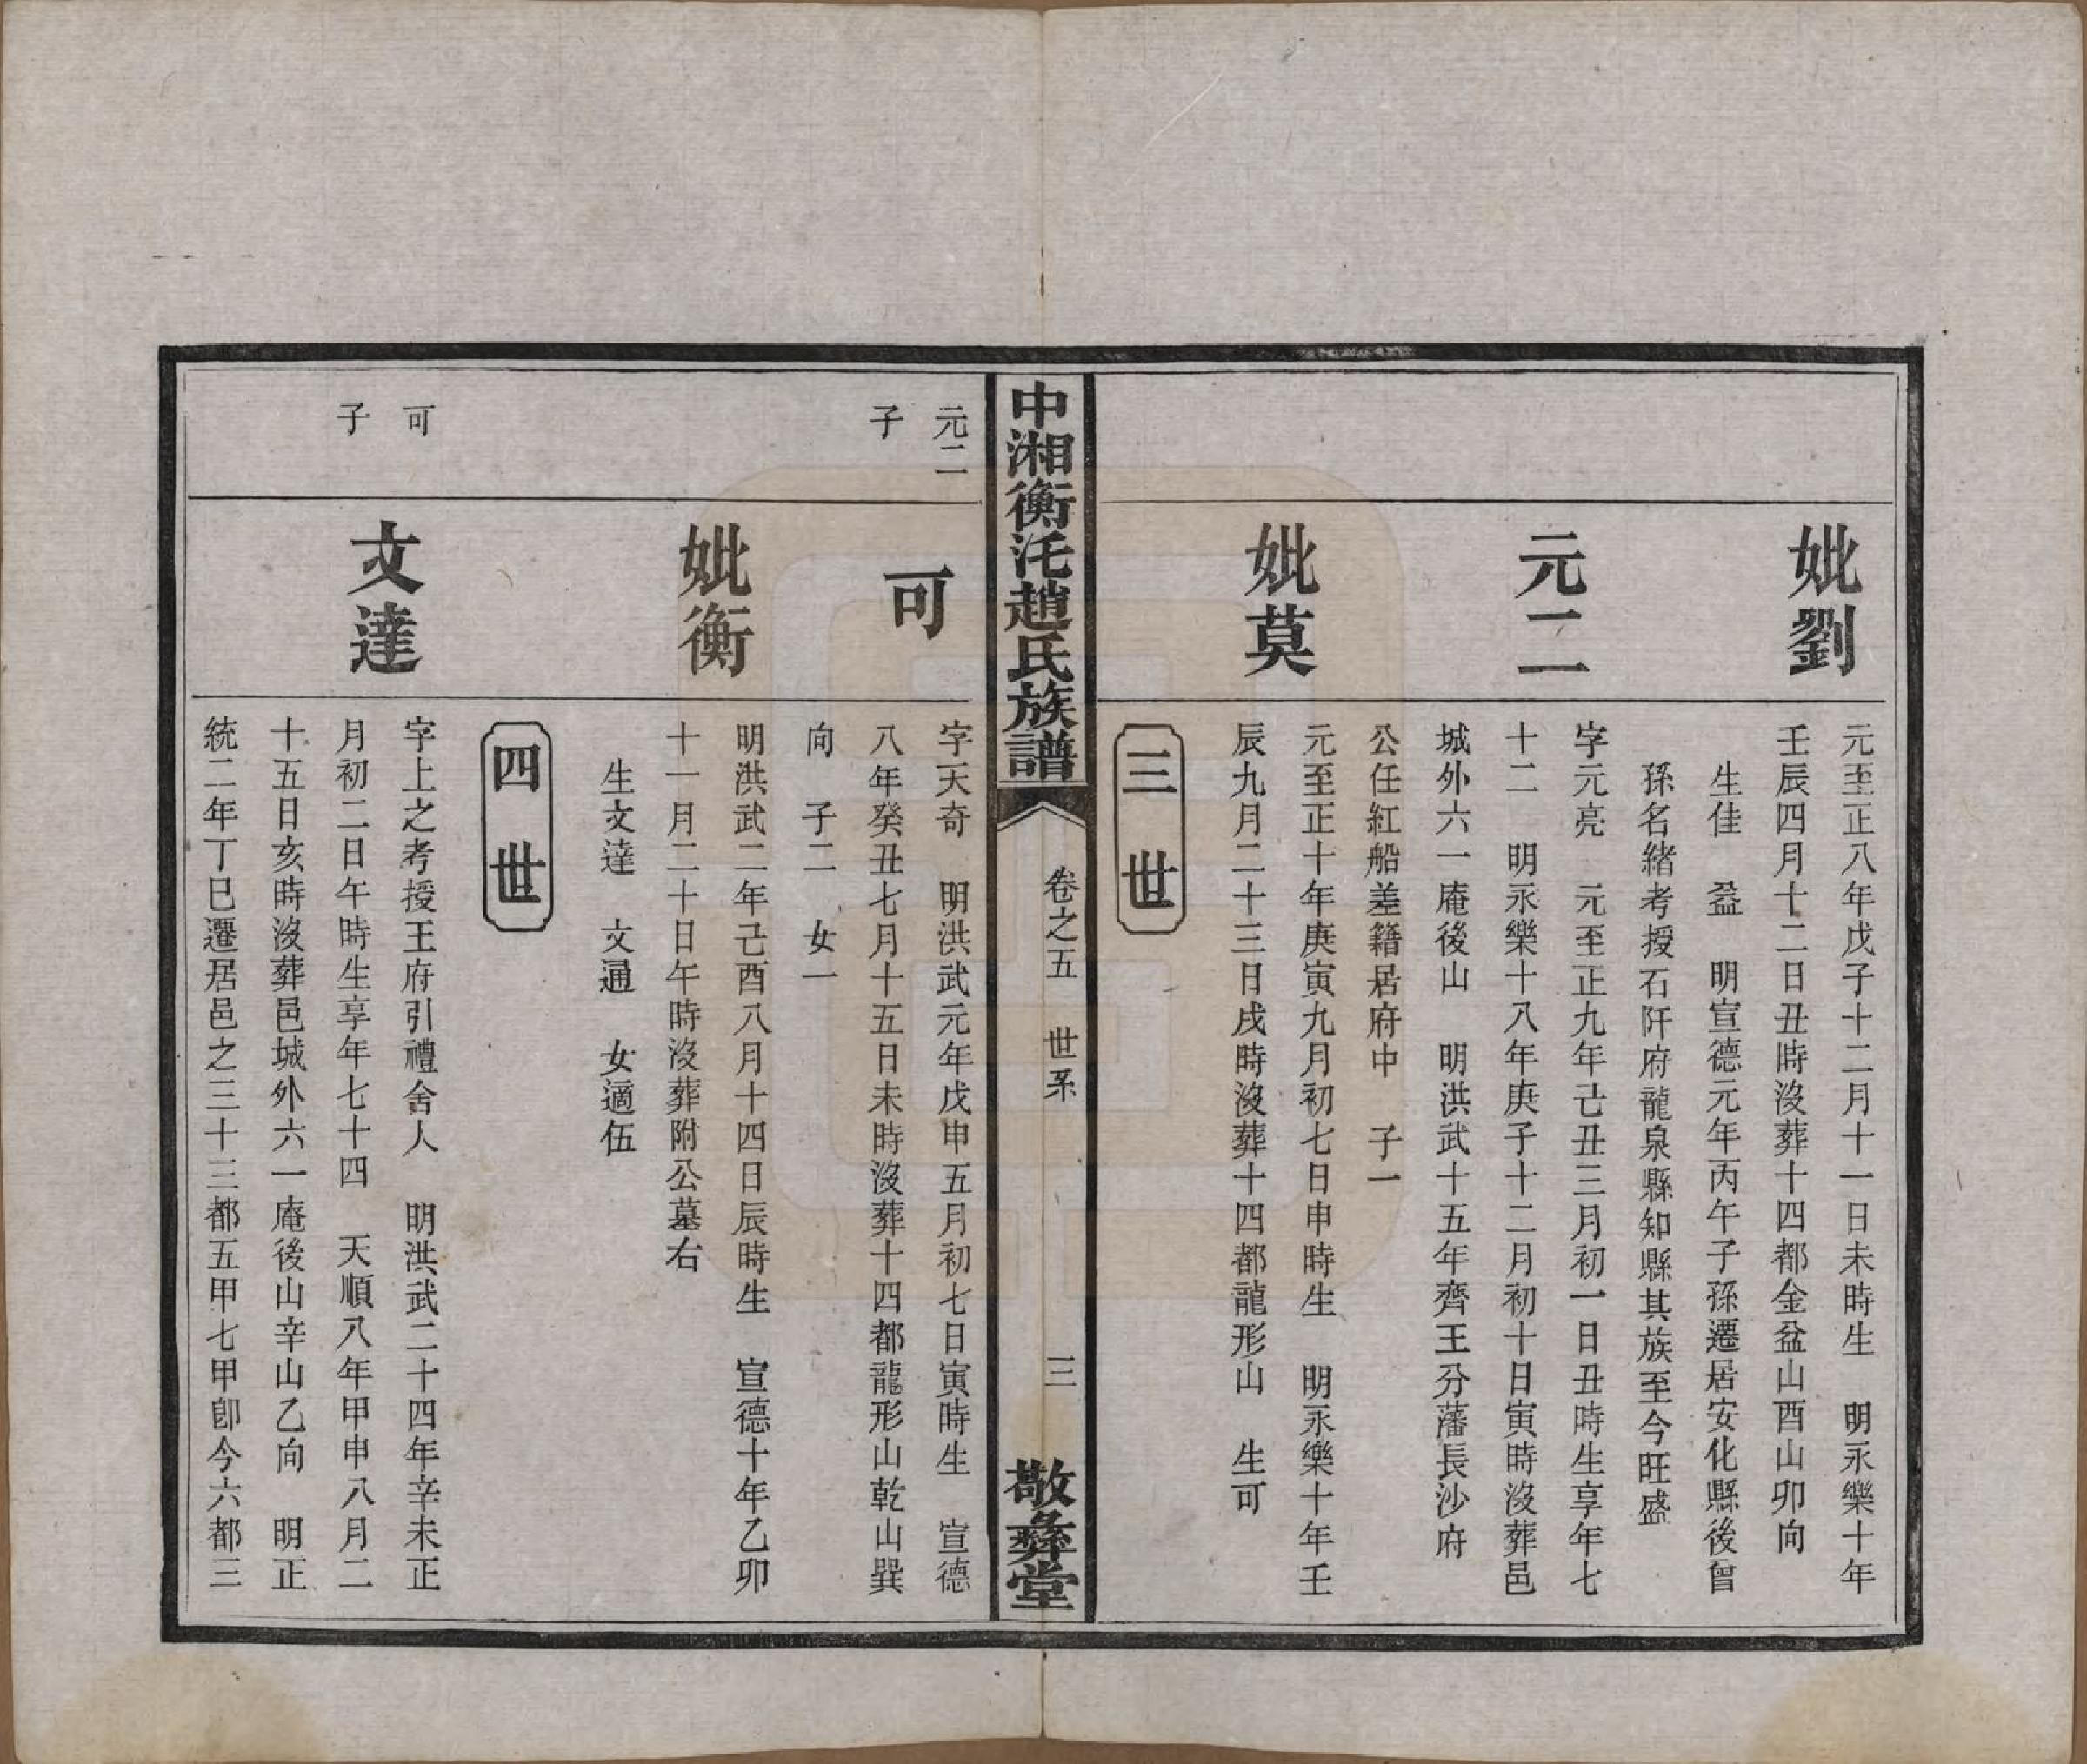 妣劉
元至正八年戊子十二月十一日未時生　明永樂十年
壬辰四月十二日丑時沒葬十四都金盆山酉山卯向
生佳　益　明宣德元年丙午子孫遷居安化縣後曾
孫名緒考授石阡府龍泉縣知縣其族至今旺盛
元二
字元亮　元至正九年己丑三月初一日丑時生享年七
十二　明永樂十八年庚子十二月初十日寅時沒葬邑
城外六一庵後山　明洪武十五年齊王分藩長沙府
公任紅船差籍居府中　子一
妣莫
元至正十年庚寅九月初七日申時生　明永樂十年壬
辰九月二十三日戌時沒葬十四都龍形山　生可
三世
中湘衡汑趙氏族譜
卷之五　世系
三
敬彝堂
元二
子
可
字天奇　明洪武元年戊申五月初七日寅時生　宣德
八年癸丑七月十五日未時沒葬十四都龍形山乾山巽
向　子二　女一
妣衡
明洪武二年己酉八月十四日辰時生　宣德十年乙卯
十一月二十日午時沒葬附公墓右
生文達　文通　女適伍
四世
可
子
文達
字上之考授王府引禮舍人　明洪武二十四年辛未正
月初二日午時生享年七十四　天順八年甲申八月二
十五日亥時沒葬邑城外六一庵後山辛山乙向　明正
統二年丁巳遷居邑之三十三都五甲七甲卽今六都三